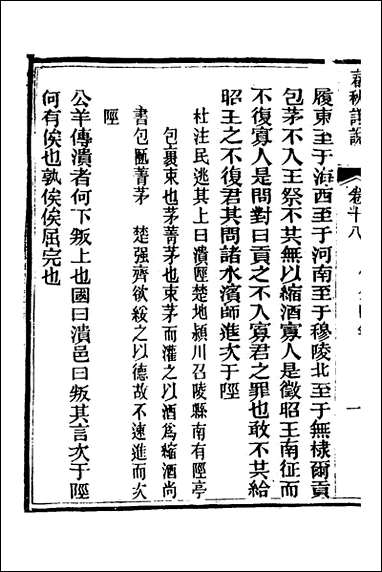 春秋詳說
卷十八
一
履東至于海西至于河南至于穆陵北至于無棣爾貢
包茅不入王祭不共無以縮酒寡人是徵昭王南征而
不復寡人是問對曰貢之不入寡君之罪也敢不共給
昭王之不復君其問諸水濱師進次于陘
杜注民逃其上曰潰陘楚地潁川召陵縣南有陘亭
包裹束也茅菁茅也束茅而灌之以酒為縮酒尚
書包匭菁茅 楚强齊欲綏之以德故不速進而次
陘
公羊傳潰者何下叛上也國曰潰邑曰叛其言次于陘
何有俟也孰俟俟屈完也